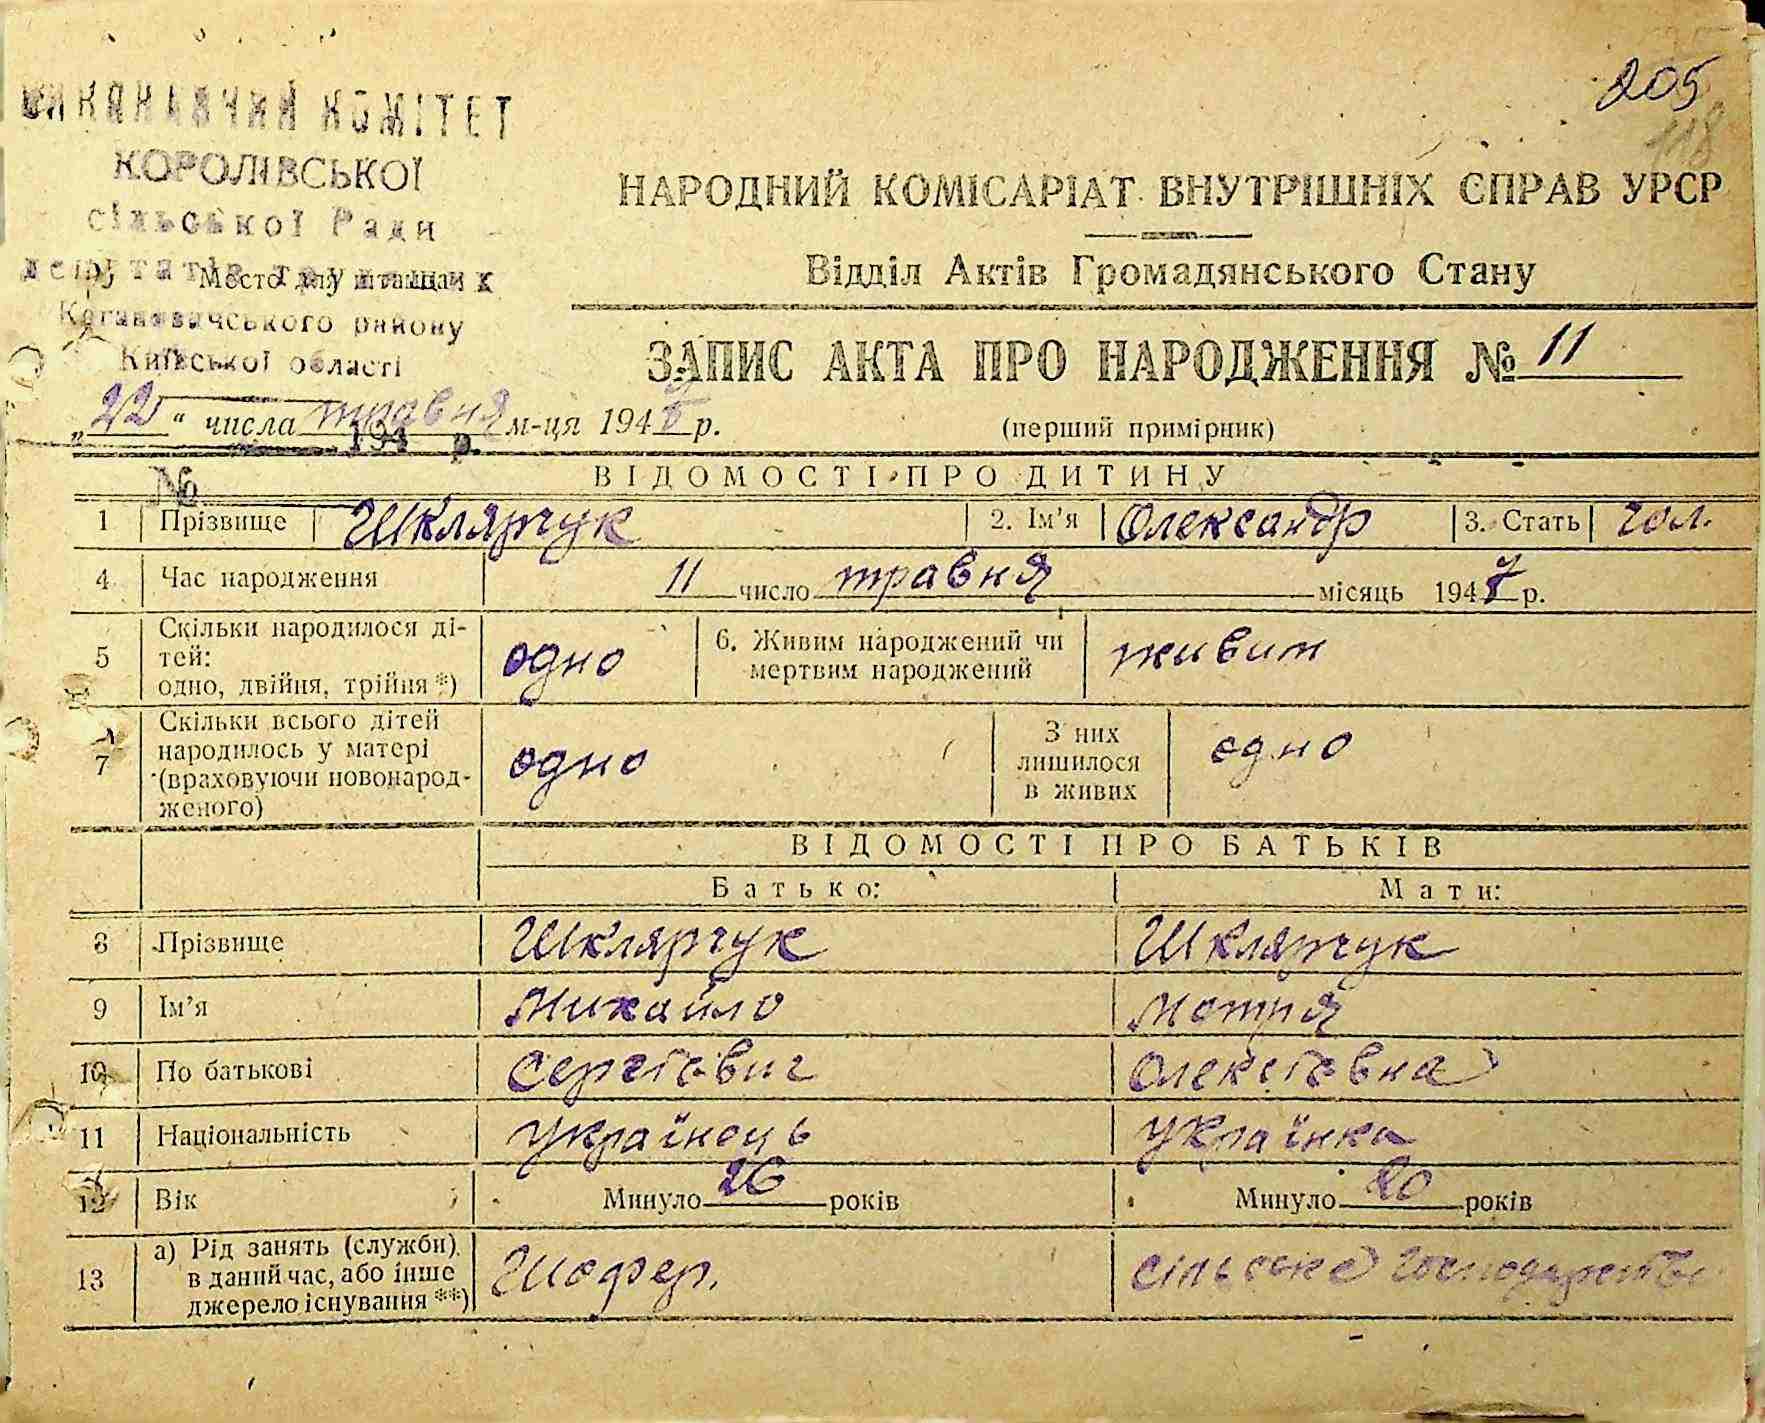 205
118
ВИКОНАВЧИЙ КОМІТЕТ
КОРОЛІВСЬКОЇ
сільської Ради
депутатів трудящих
Место для штампа
Кагановичського району
Київської області
НАРОДНИЙ КОМІСАРІАТ ВНУТРІШНІХ СПРАВ УРСР
Відділ Актів Громадянського Стану
ЗАПИС АКТА ПРО НАРОДЖЕННЯ № 11
(перший примірник)
„22“ числа травня м-ця 194 р.
194 р.
№
ВІДОМОСТІ ПРО ДИТИНУ
1 Прізвище Шклярчук 2. Ім'я Олександр 3. Стать чол.
4 Час народження 11 число травня місяць 194 р.
5 Скільки народилося ді-
тей:
одно, двійня, трійня *) одно 6. Живим народжений чи
мертвим народжений живим
7 Скільки всього дітей
народилось у матері
(враховуючи новонарод-
женого) одно З них
лишилося
в живих одно
ВІДОМОСТІ ПРО БАТЬКІВ
Батько: Мати:
8 Прізвище Шклярчук Шклярчук
9 Ім'я Михайло Мотря
10 По батькові Сергієвич Олексієвна
11 Національність українець українка
12 Вік Минуло 26 років Минуло 20 років
13 а) Рід занять (служби)
в даний час, або інше
джерело існування **) Шофер. сільське господарство